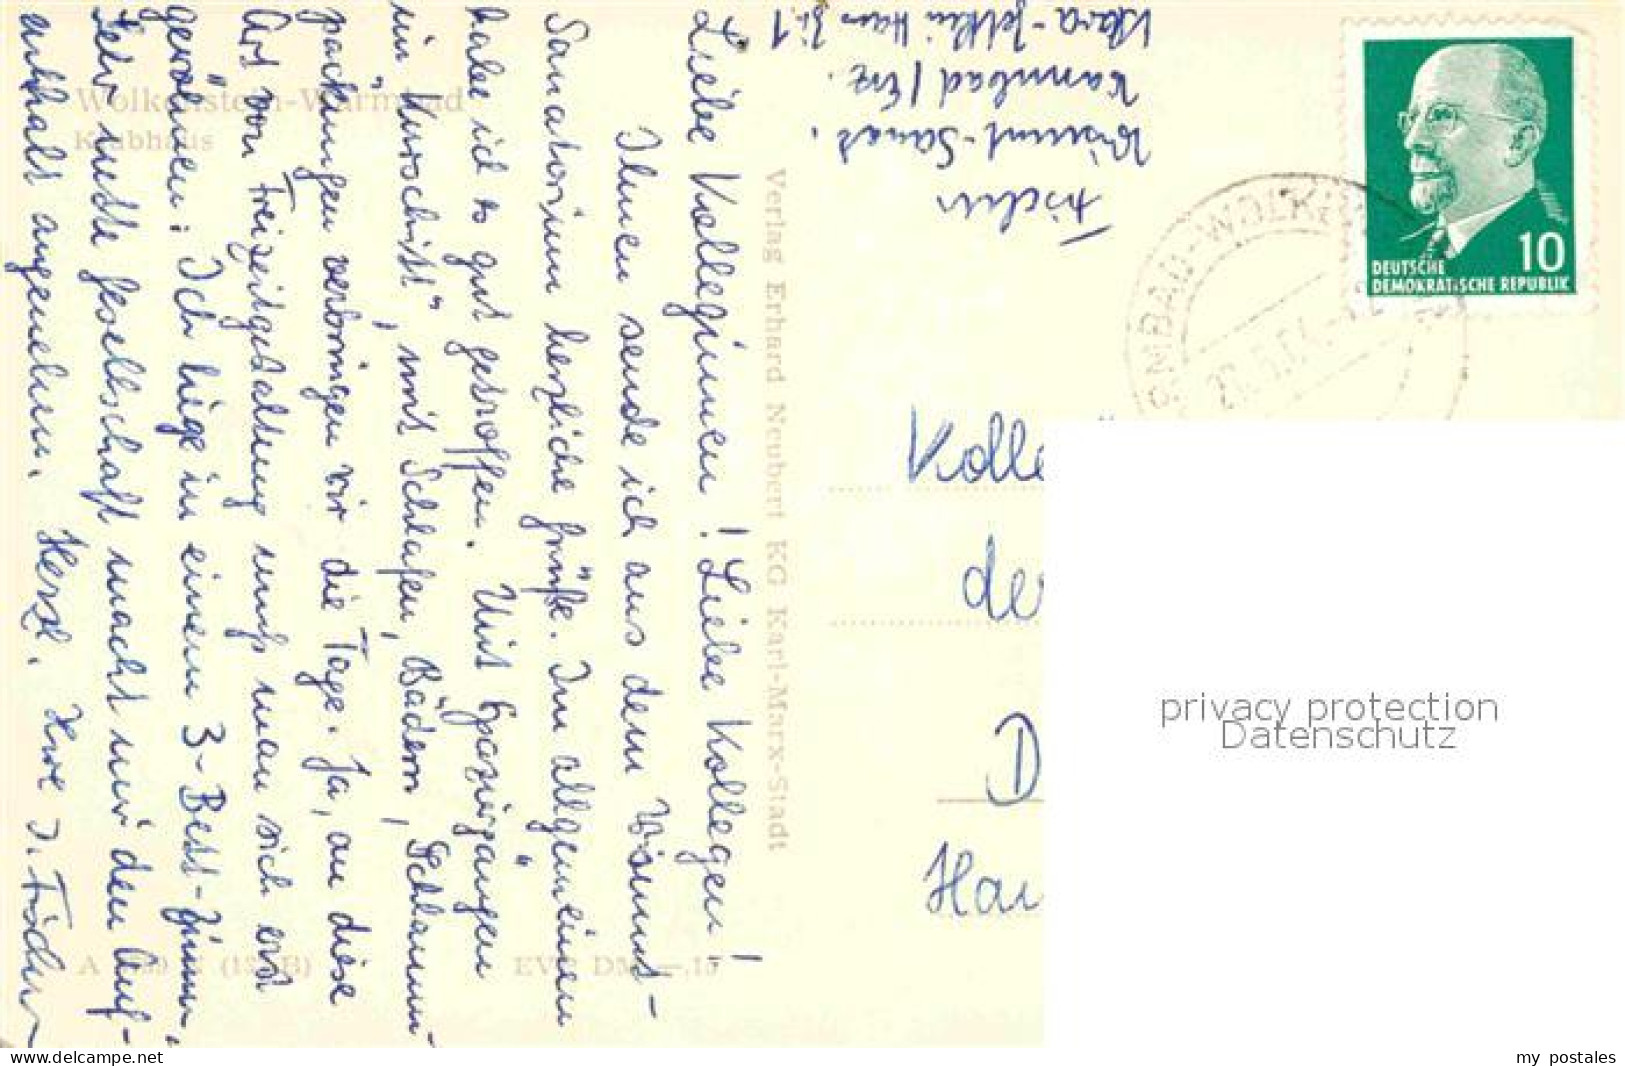 Wolkenstein-Warmbad
Kurbhaus
Verlag Erhard Neubert KG Karl-Marx-Stadt
EVP DM —,15
Liebe Kolleginnen! Liebe Kollegen!
Ihnen sende ich aus dem Wismut-
Sanatorium herzliche Grüße. Im allgemeinen
habe ich es gut getroffen. Mit Spaziergängen
im "Kurschritt", mit Schlafen, Bädern, Schlamm-
packungen verbringen wir die Tage. Ja, an diese
Art von Freizeitgestaltung muß man sich erst
gewöhnen. Ich liege in einem 3-Bett-Zimm.
Sehr nette Gesellschaft macht mir den Auf-
enthalt angenehm. Herzl. Ihre I. Fischer
Fischer
Wismut-Sanat.
Warmbad/Erz.
Klara-Zetkin Haus Zi. 1
DEUTSCHE
DEMOKRATISCHE REPUBLIK
10
Kolle
der
D
Hai
privacy protection
Datenschutz
www.delcampe.net
my postales